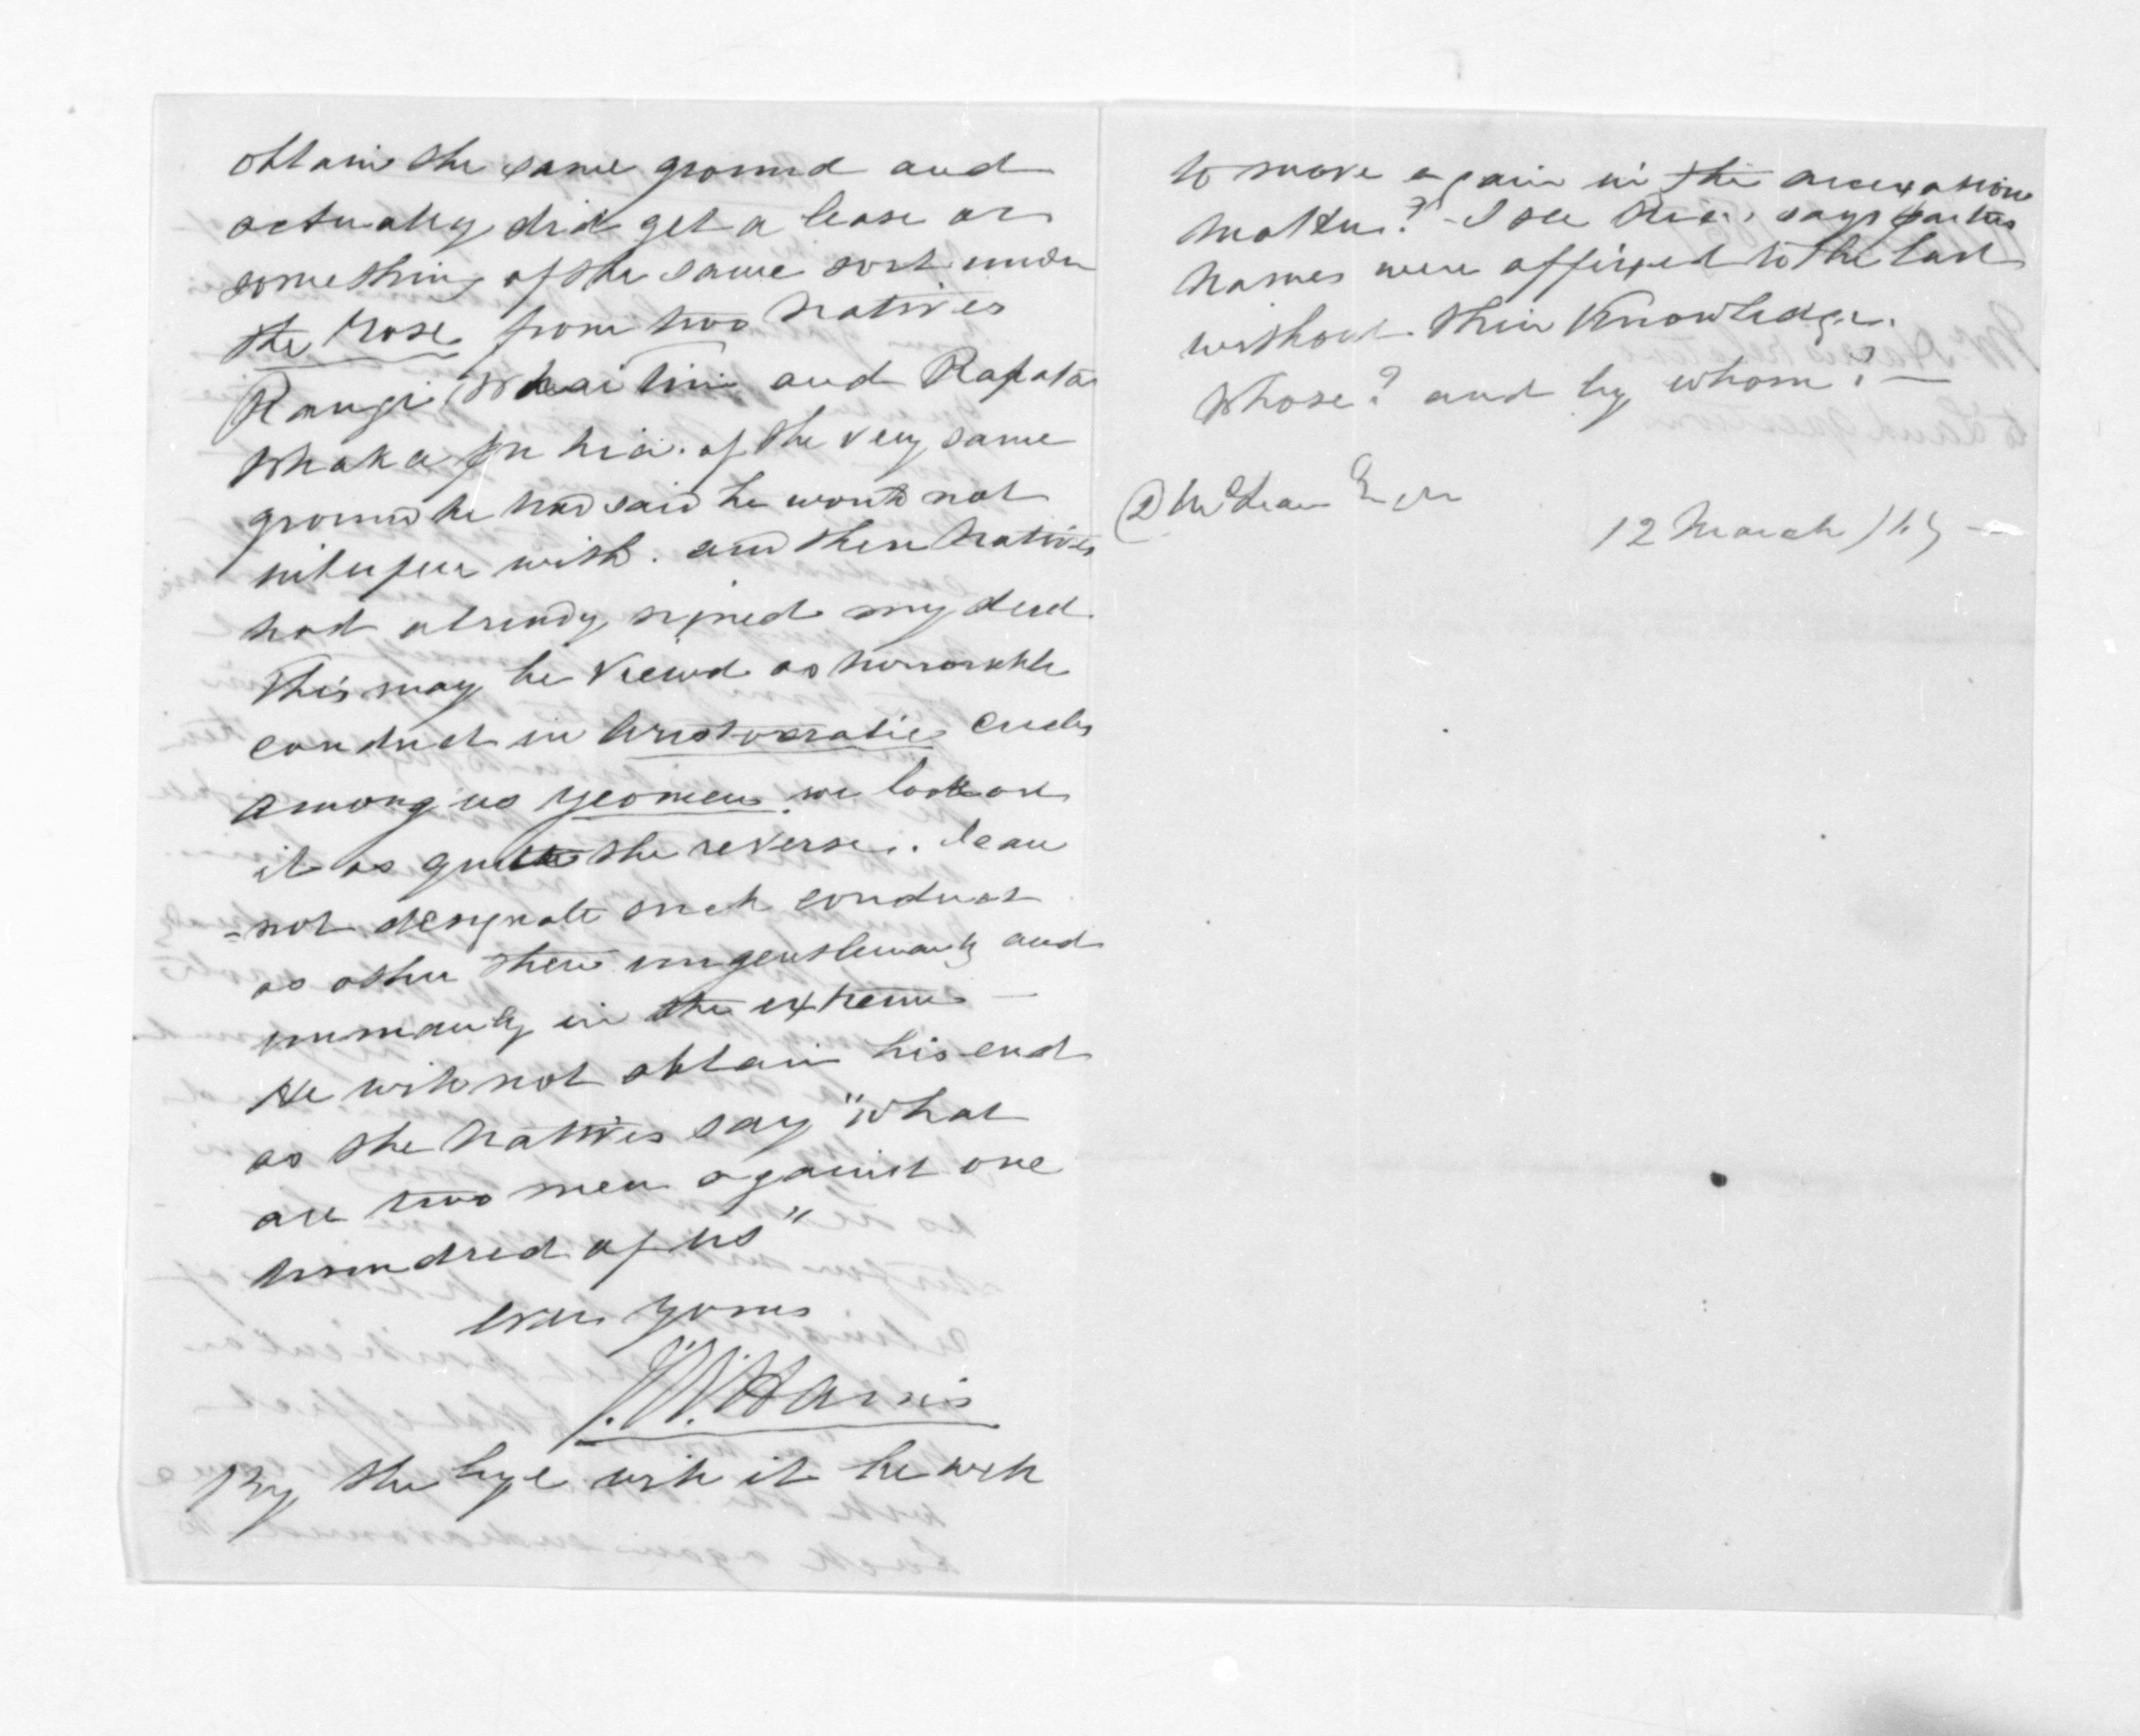 obtain the same ground and
actually did get a lease or
something of the same sort under
the Rose from two Natives
Rangi Whai and Rapata
Whaka pu hia. of the very same
ground he had said he would not
interfere with. and these Natives
had already signed my deed
This may be viewd as honorable
conduct in Aristocratic Circles
among us yeomen we look on
it as quite the reverse. I can
-not designate such conduct
as other then ungentlemanly and
unmanly in the extreme —
He will not obtain his end
as the Natives say "What
are two men against one
hundred of us"
ever yours
J. W. Harris
By the bye will it be well
to move again in the annexation
matter? - I see says parties
names were affixed to the last
without their Knowledge.
Whose? and by whom? —
D McLean Esqr
12 March